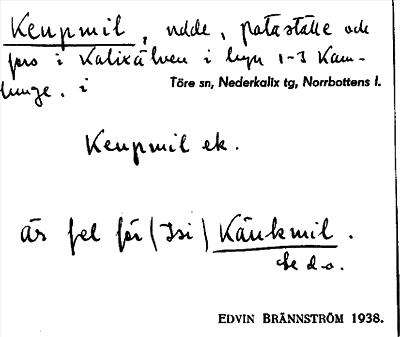 Keupmil, udde, pataställe och
fors i Kalixälven i hgn 1-3 Kam-
lunge. i Töre sn, Nederkalix tg, Norrbottens l.
Keupmil ek.
är fel för (Isi) Käukmil.
Se d.o.
EDVIN BRÄNNSTRÖM 1938.